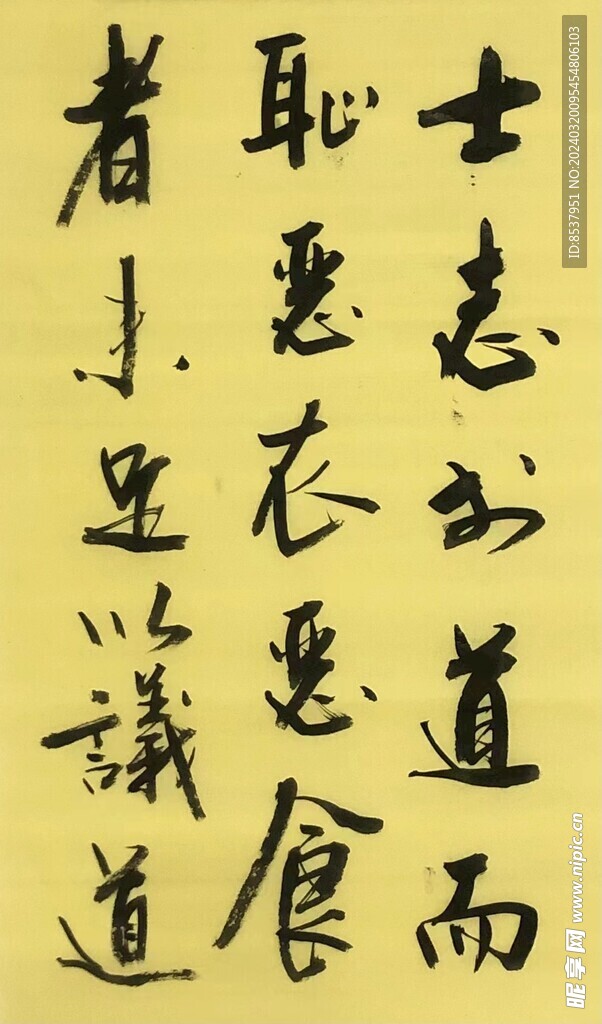 士志於道而
恥惡衣惡食
者未足以議道
ID:8537951 NO:20240320095454806103
昵享网 www.nipic.cn